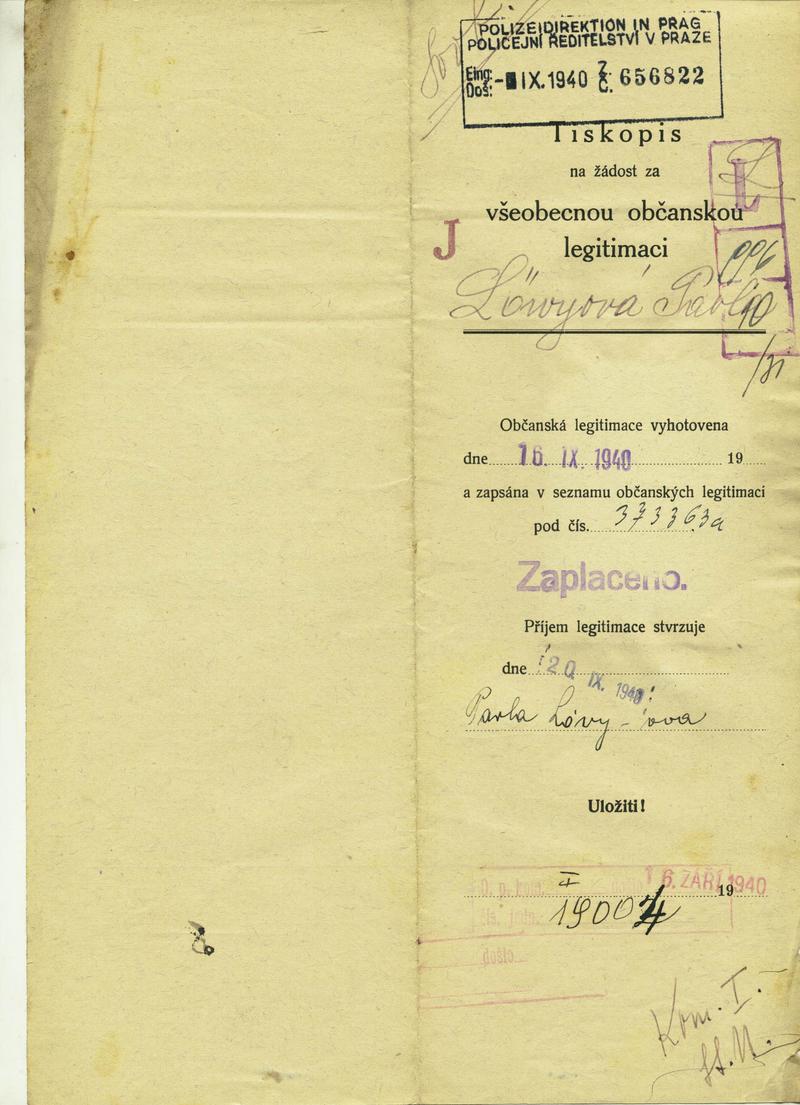 POLIZEIDIREKTION IN PRAG
POLICEJNÍ ŘEDITELSTVÍ V PRAZE
Eing.: Doš.: - IX. 1940 Z. Č. 656822
Tiskopis
na žádost za
L
všeobecnou občanskou
J
legitimaci
996
Löwyová Pavla
40
Občanská legitimace vyhotovena
dne 16. IX. 1940 19
a zapsána v seznamu občanských legitimací
pod čís. 373363a
Zaplaceno.
Příjem legitimace stvrzuje
dne 20 IX. 1940
Pavla Lövy-ova
Uložiti!
I 16. ZÁŘÍ 1940
19
19004
došlo
Kom. I.